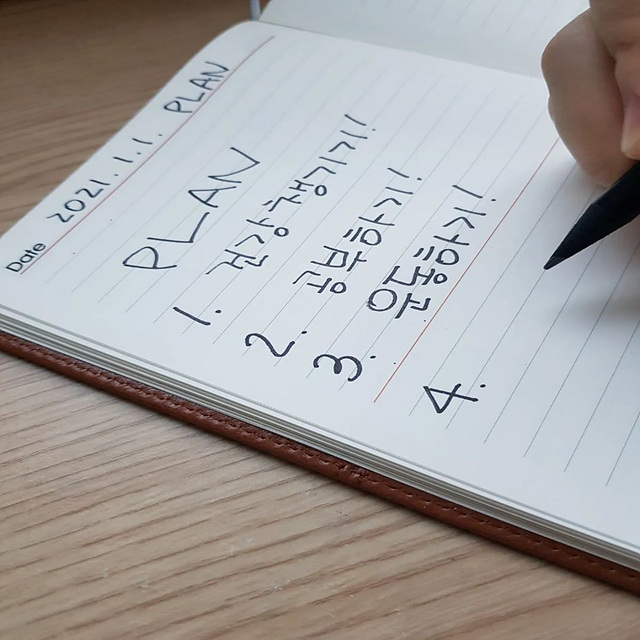 Date 2021.1.1. PLAN
PLAN
1. 건강 챙기기!
2. 공부하기!
3. 운동하기!
4.